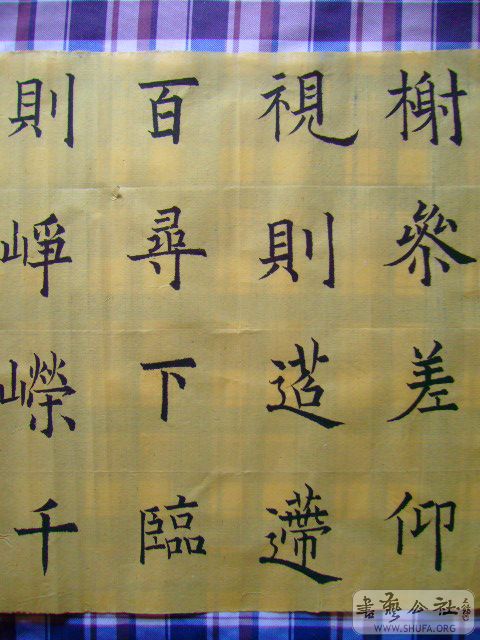 榭參差仰
視則迢遰
百尋下臨
則崢嶸千
書藝公社
WWW.SHUFA.ORG